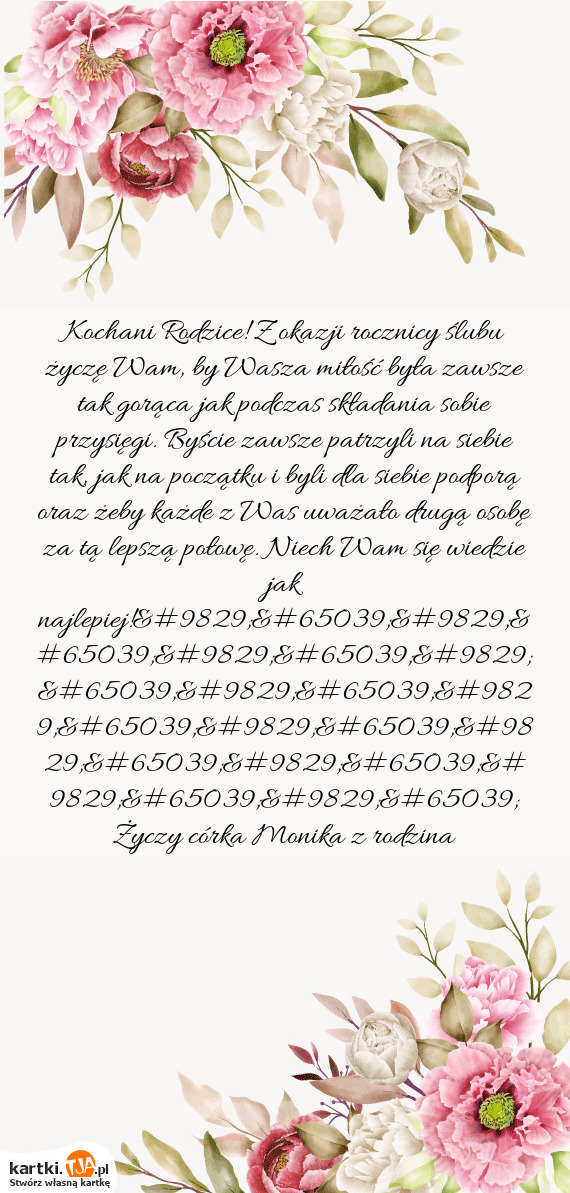 Kochani Rodzice! Z okazji rocznicy ślubu
życzę Wam, by Wasza miłość była zawsze
tak gorąca jak podczas składania sobie
przysięgi. Byście zawsze patrzyli na siebie
tak, jak na początku i byli dla siebie podporą
oraz żeby każde z Was uważało drugą osobę
za tą lepszą połowę. Niech Wam się wiedzie
jak
najlepiej!&#9829;&#65039;&#9829;&
#65039;&#9829;&#65039;&#9829;
&#65039;&#9829;&#65039;&#982
9;&#65039;&#9829;&#65039;&#98
29;&#65039;&#9829;&#65039;&#
9829;&#65039;&#9829;&#65039;
Życzy córka Monika z rodzina
kartki.TJA.pl
Stwórz własną kartkę